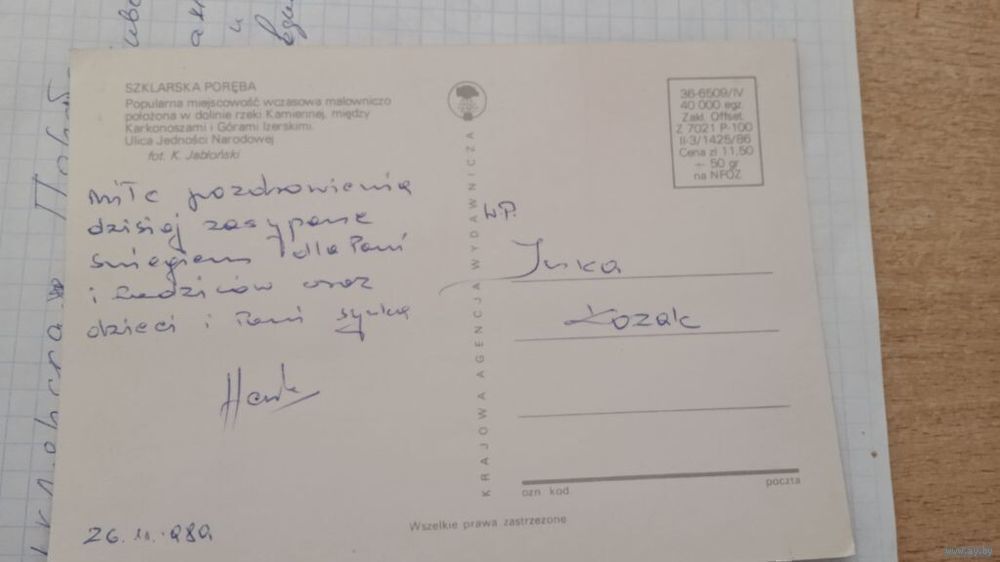 SZKLARSKA PORĘBA
Popularna miejscowość wczasowa malowniczo
położona w dolinie rzeki Kamiennej, między
Karkonoszami i Górami Izerskimi.
Ulica Jedności Narodowej
fot. K. Jabłoński
miłe pozdrowienia
dzisiaj zasypane
śniegiem dla Pani
i Rodziców oraz
dzieci i Pani synka
26. 11. 989
KRAJOWA AGENCJA WYDAWNICZA
36-6509/IV
40 000 egz.
Zakł. Offset.
Z. 7021 P-100
II-3/1425/86
Cena zł 11,50
+ 50 gr
na NFOZ
W.P.
Inka
Kozak
ozn. kod.
poczta
Wszelkie prawa zastrzeżone
www.ay.by